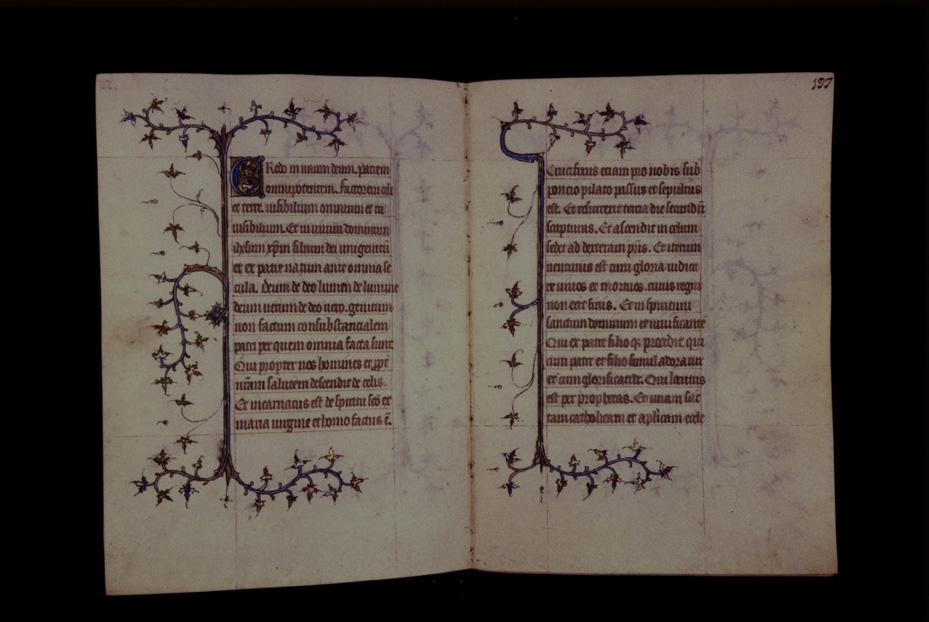 Credo in unum deum. patrem
omnipotentem. factorem celi
et terre. uisibilium omnium et in
uisibilium. Et in unum dominum
ihesum xpm filium dei unigenitū
et ex patre natum ante omnia se
cula. Deum de deo lumen de lumine
deum uerum de deo uero. genitum
non factum consubstancialem
patri per quem omnia facta sunt
Qui propter nos homines et ꝓpt
nr̄am salutem descendit de celis.
Et incarnatus est de spiritu sc̄o ex
maria uirgine et homo factus ē.
137
Crucifixus eciam pro nobis sub
poncio pilato passus et sepultus
est. Et resurrexit tercia die secundū
scripturas. Et ascendit in celum
sedet ad dexteram pr̄is. Et iterum
uenturus est cum gloria iudica
re uiuos et mortuos. cuius regni
non erit finis. Et in spiritum
sanctum dominum et uiuificante
Qui ex patre filio qꝫ procedit qui
cum patre et filio simul adoratur
et cum glorificatur. Qui locutus
est per prophetas. Et unam sanc
tam catholicam et apl̄icam eccle